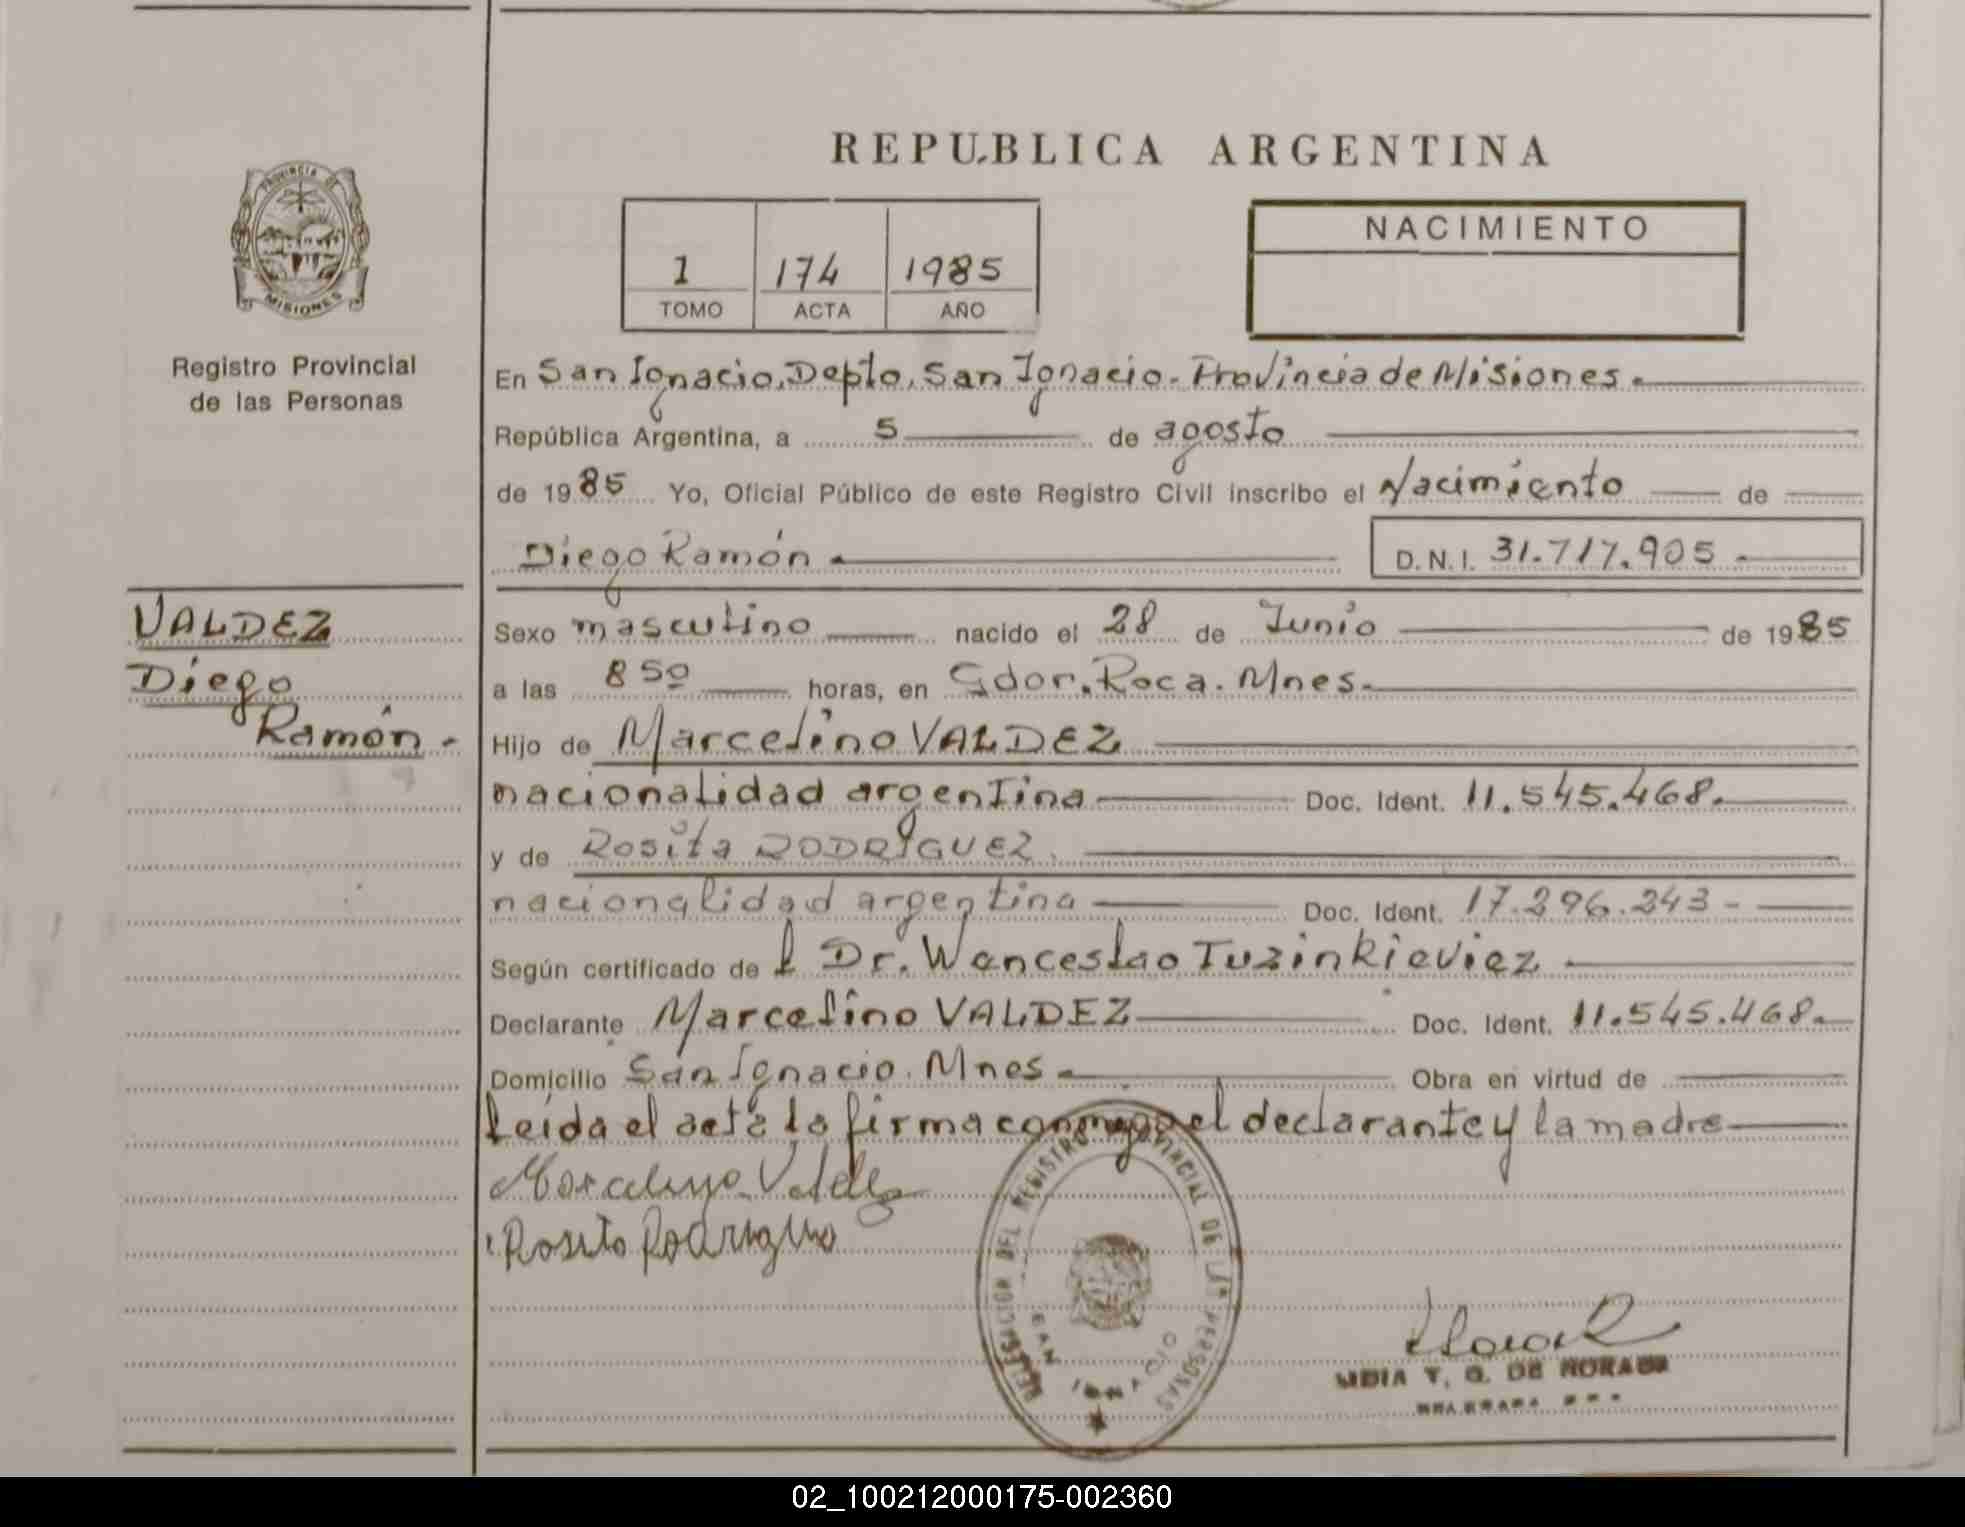 REPUBLICA ARGENTINA
PROVINCIA DE
MISIONES
Registro Provincial
de las Personas
1 174 1985
TOMO ACTA AÑO
NACIMIENTO
En San Ignacio, Depto, San Ignacio - Provincia de Misiones.
República Argentina, a 5 de agosto
de 1985 Yo, Oficial Público de este Registro Civil inscribo el Nacimiento de
Diego Ramón D.N.I. 31.717.905
VALDEZ
Diego
Ramón.
Sexo masculino nacido el 28 de Junio de 1985
a las 8 50 horas, en Gdor. Roca. Mnes.
Hijo de Marcelino VALDEZ
nacionalidad argentina Doc. Ident. 11.545.468.
y de Rosita RODRIGUEZ.
nacionalidad argentina Doc. Ident. 17.296.243 -
Según certificado del Dr. Wenceslao Tuzinkieviez
Declarante Marcelino VALDEZ Doc. Ident. 11.545.468.
Domicilio San Ignacio. Mnes. Obra en virtud de
Leída el acta la firma conmigo el declarante y la madre
Marcelino Valdez
Rosita Rodriguez
DELEGACION DEL REGISTRO PROVINCIAL DE LAS PERSONAS
SAN IGNACIO
T. G. DE
02_100212000175-002360